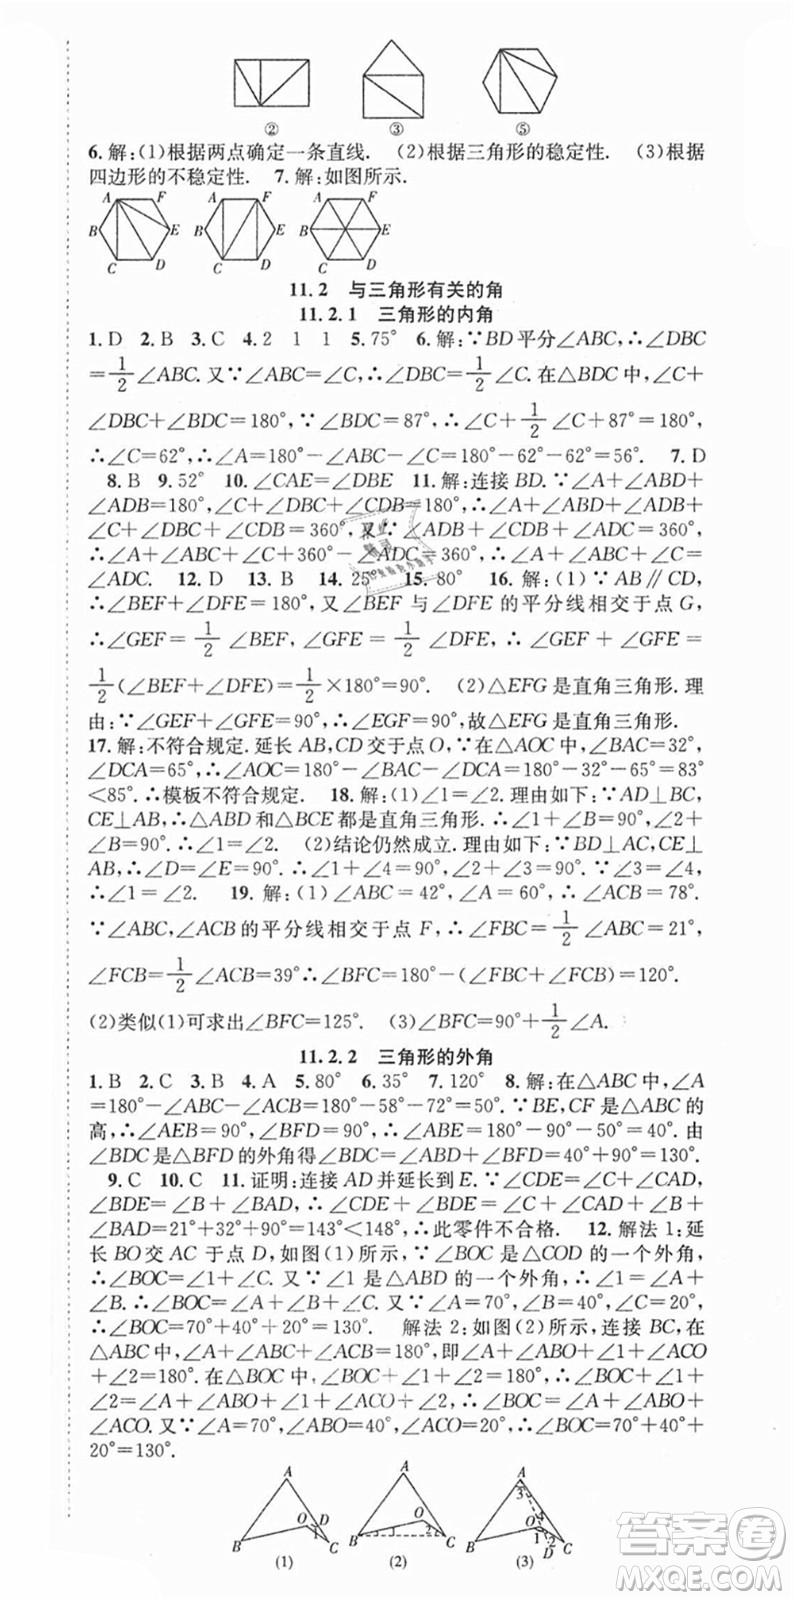 ② ③ ⑤
6. 解:(1)根据两点确定一条直线. (2)根据三角形的稳定性. (3)根据
四边形的不稳定性. 7. 解:如图所示.
A F A F A F
B E B E B E
C D C D C D
11.2 与三角形有关的角
11.2.1 三角形的内角
1. D 2. B 3. C 4. 2 1 1 5. 75° 6. 解:∵BD平分∠ABC,∴∠DBC
=1/2∠ABC. 又∵∠ABC=∠C,∴∠DBC=1/2∠C. 在△BDC中,∠C+
∠DBC+∠BDC=180°,∵∠BDC=87°,∴∠C+1/2∠C+87°=180°,
∴∠C=62°,∴∠A=180°-∠ABC-∠C=180°-62°-62°=56°. 7. D
8. B 9. 52° 10. ∠CAE=∠DBE 11. 解:连接BD. ∵∠A+∠ABD+
∠ADB=180°,∠C+∠DBC+∠CDB=180°,∴∠A+∠ABD+∠ADB+
∠C+∠DBC+∠CDB=360°,又∵∠ADB+∠CDB+∠ADC=360°,
∴∠A+∠ABC+∠C=360°-∠ADC=360°,∴∠A+∠ABC+∠C=
∠ADC. 12. D 13. B 14. 25° 15. 80° 16. 解:(1)∵AB∥CD,
∴∠BEF+∠DFE=180°,又∠BEF与∠DFE的平分线相交于点G,
∴∠GEF=1/2∠BEF,∠GFE=1/2∠DFE,∴∠GEF+∠GFE=
1/2(∠BEF+∠DFE)=1/2×180°=90°. (2)△EFG是直角三角形. 理
由:∵∠GEF+∠GFE=90°,∴∠EGF=90°,故△EFG是直角三角形.
17. 解:不符合规定. 延长AB,CD交于点O,∵在△AOC中,∠BAC=32°,
∠DCA=65°,∴∠AOC=180°-∠BAC-∠DCA=180°-32°-65°=83°
<85°. ∴模板不符合规定. 18. 解:(1)∠1=∠2. 理由如下:∵AD⊥BC,
CE⊥AB,∴△ABD和△BCE都是直角三角形. ∴∠1+∠B=90°,∠2+
∠B=90°. ∴∠1=∠2. (2)结论仍然成立. 理由如下:∵BD⊥AC,CE⊥
AB,∴∠D=∠E=90°. ∴∠1+∠4=90°,∠2+∠3=90°. ∵∠3=∠4,
∴∠1=∠2. 19. 解:(1)∠ABC=42°,∠A=60°,∴∠ACB=78°.
∵∠ABC,∠ACB的平分线相交于点F,∴∠FBC=1/2∠ABC=21°,
∠FCB=1/2∠ACB=39°∴∠BFC=180°-(∠FBC+∠FCB)=120°.
(2)类似(1)可求出∠BFC=125°. (3)∠BFC=90°+1/2∠A.
11.2.2 三角形的外角
1. B 2. C 3. C 4. A 5. 80° 6. 35° 7. 120° 8. 解:在△ABC中,∠A
=180°-∠ABC-∠ACB=180°-58°-72°=50°. ∵BE,CF是△ABC的
高,∴∠AEB=90°,∠BFD=90°,∴∠ABE=180°-90°-50°=40°. 由
∠BDC是△BFD的外角得∠BDC=∠ABE+∠BFD=40°+90°=130°.
9. C 10. C 11. 证明:连接AD并延长到E. ∵∠CDE=∠C+∠CAD,
∠BDE=∠B+∠BAD,∴∠CDE+∠BDE=∠C+∠CAD+∠B+
∠BAD=21°+32°+90°=143°<148°,∴此零件不合格. 12. 解法1:延
长BO交AC于点D,如图(1)所示,∵∠BOC是△COD的一个外角,
∴∠BOC=∠1+∠C. 又∵∠1是△ABD的一个外角,∴∠1=∠A+
∠B. ∴∠BOC=∠A+∠B+∠C. 又∵∠A=70°,∠B=40°,∠C=20°,
∴∠BOC=70°+40°+20°=130°. 解法2:如图(2)所示,连接BC,在
△ABC中,∠A+∠ABC+∠ACB=180°,即∠A+∠ABO+∠1+∠ACO+
∠2=180°,在△BOC中,∠BOC+∠1+∠2=180°,∴∠BOC+∠1+
∠2=∠A+∠ABO+∠1+∠ACO+∠2,∴∠BOC=∠A+∠ABO+
∠ACO. 又∵∠A=70°,∠ABO=40°,∠ACO=20°,∴∠BOC=70°+40°+
20°=130°.
A A A
O D 1 B C O 1 2 B C 3 O 1 2 D B C
(1) (2) (3)
答案圈
MXQE.COM